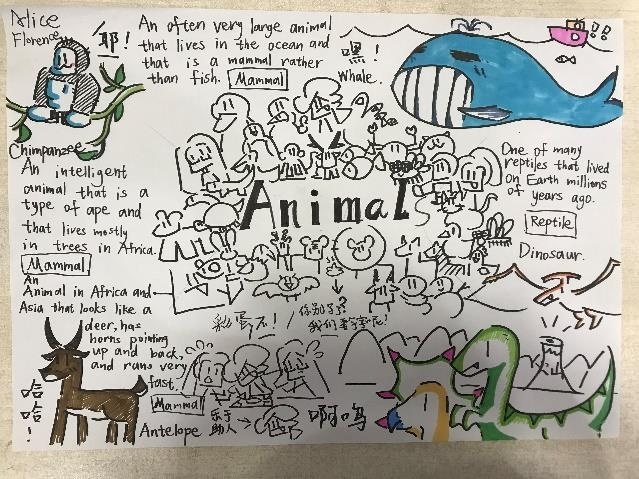 Alice
Florence
耶！
An often very large animal
that lives in the ocean and
that is a mammal rather
than fish. Mammal
嘿！
Whale.
!!
Chimpanzee
An intelligent
animal that is a
type of ape and
that lives mostly
in trees in Africa.
Mammal
Animal
One of many
reptiles that lived
on Earth millions
of years ago.
Reptile
Dinosaur.
An
Animal in Africa and
Asia that looks like a
deer, has
horns pointing
up and back,
and runs very
fast.
Mammal
Antelope
哈
哈
！
你别
我们
乐于
助人
啊呜